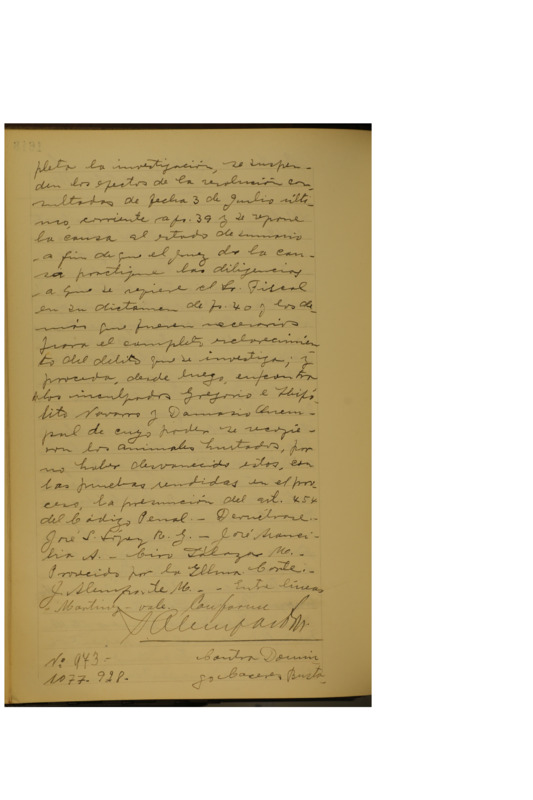 pleta la investigación, se suspen-
den los efectos de la resolución con-
sultadas de fecha 3 de Junio últi-
mo, corriente a fs. 39 y se repone
la causa al estado de sumario
a fin de que el juez de la cau-
sa practique las diligencias
a que se refiere el Sr. Fiscal
en su dictamen de fs. 40 y los de-
más que fueren necesarios
para el completo esclarecimien-
to del delito que se investiga; y
proceda, desde luego, en contra
de los inculpados Gregorio e Hipó-
lito Navarro y Damasio
de cuyo poder se recogie-
ron los animales hurtados, por
no haber desvanecido estos, con
las pruebas rendidas en el pro-
ceso, la presunción del art. 454
del Código Penal.- Devuélvase.-
José S. López R. G. - José
A. - Ciro Salazar M. -
Proveído por la Iltma Corte.-
J. Alemparte M. - Entre líneas
- vale. Conforme
J Alemparte M.
No 943.-
1077-928.-
Contra Domin
go Caceres Busta-